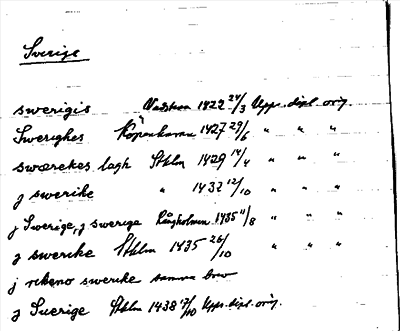 Sverige
swerigis Vadstena 1422 24/3 Upps. dipl. orig.
Swerighes Köpenhamn 1427 29/6 " " "
swærekes lagh Sthlm 1429 14/4 " " "
j swerike " 1432 12/10 " " "
j Swerige, j swerige Långholmen 1435 11/8 " " "
j swerike Sthlm 1435 26/10 " " "
j rikeno swerike samma brev
j Suerige Sthlm 1438 17/10 Upps. dipl. orig.